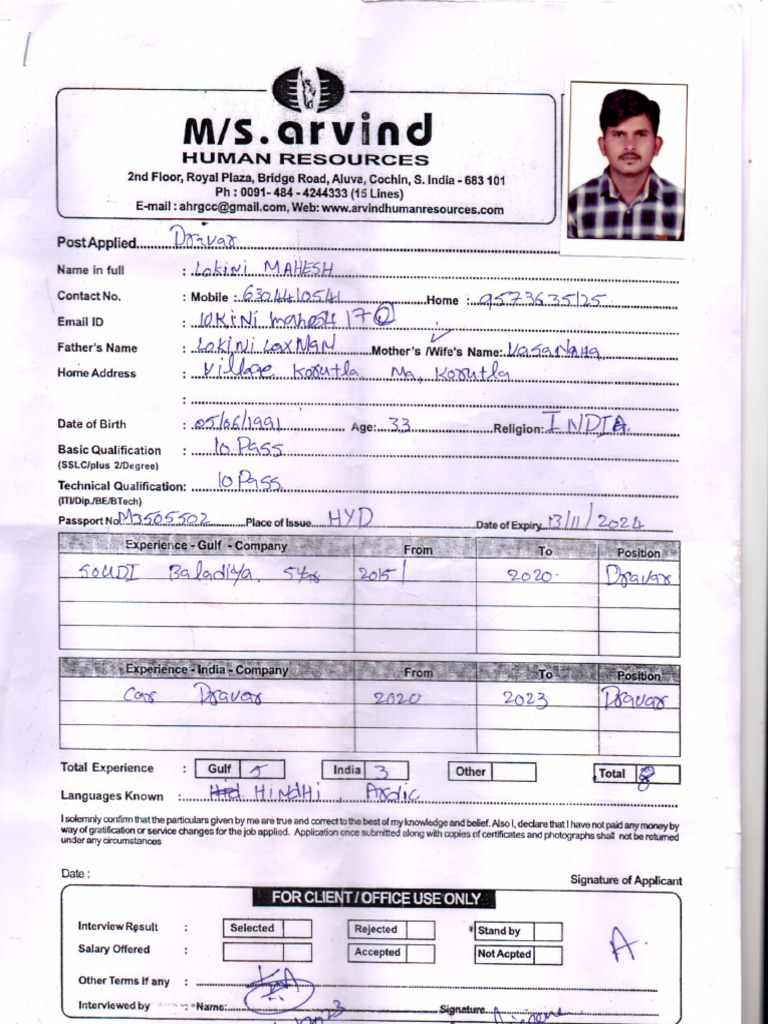 M/S. arvind
HUMAN RESOURCES
2nd Floor, Royal Plaza, Bridge Road, Aluva, Cochin, S. India - 683 101
Ph : 0091- 484 - 4244333 (15 Lines)
E-mail : ahrgcc@gmail.com, Web: www.arvindhumanresources.com
Post Applied Dravar
Name in full : LOKiNi MAHESH
Contact No. : Mobile : 6304410541 Home : 9573635125
Email ID : lOKiNi mahesh 170
Father's Name : LOKiNi LaxMAN Mother's /Wife's Name: VasaNaHa
Home Address : Village Korutla Ma, Korutla
:
Date of Birth : 05/06/1991 Age: 33 Religion: INDIA
Basic Qualification : 10 Pass
(SSLC/plus 2/Degree)
Technical Qualification: 10 Pass
(ITI/Dip./BE/BTech)
Passport No M3505502 Place of Issue HYD Date of Expiry 13/11/2024
Experience - Gulf - Company From To Position
SOUDI Baladiya 5Yrs 2015 2020 Dravar
Experience - India - Company From To Position
Car Dravar 2020 2023 Dravar
Total Experience : Gulf 5 India 3 Other Total 8
Languages Known : HINDHI, Arabic
I solemnly confirm that the particulars given by me are true and correct to the best of my knowledge and belief. Also I, declare that I have not paid any money by
way of gratification or service changes for the job applied. Application once submitted along with copies of certificates and photographs shall not be returned
under any circumstances
Date : Signature of Applicant
FOR CLIENT / OFFICE USE ONLY
Interview Result : Selected Rejected * Stand by
Salary Offered : Accepted Not Acpted
A
Other Terms if any :
Interviewed by : Name: Signature